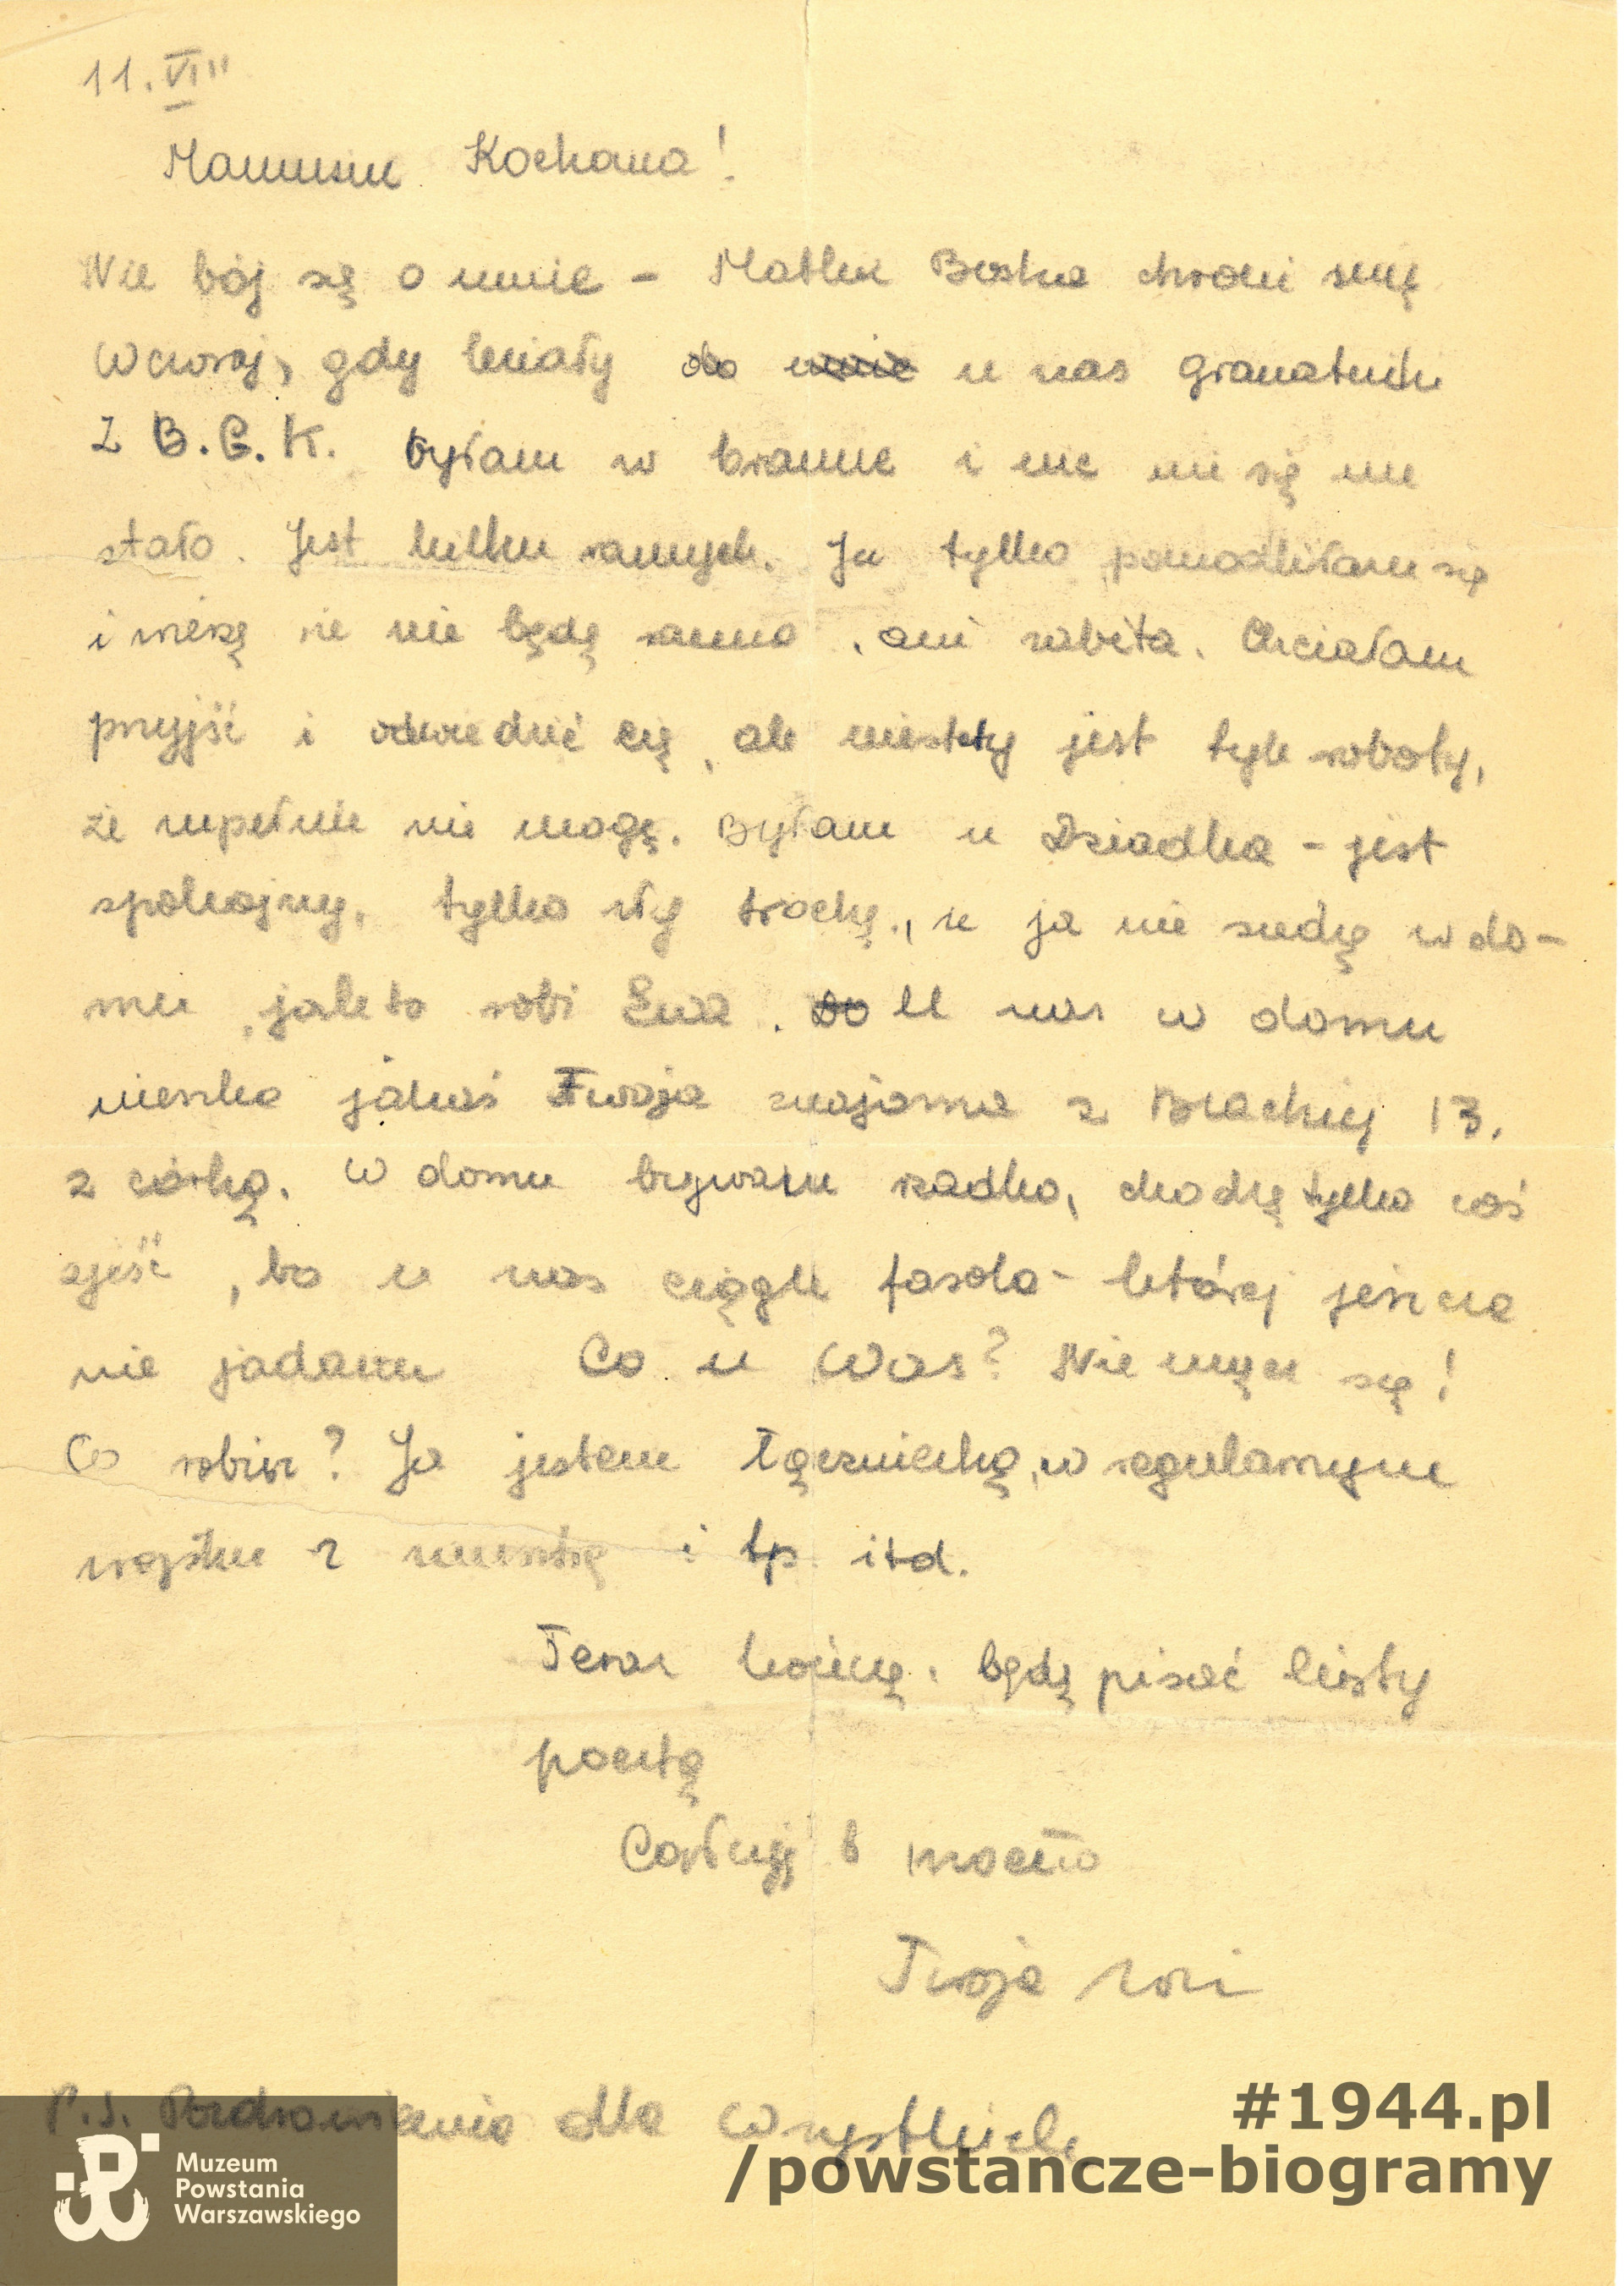 11.VIII
Mamusiu Kochana!
Nie bój się o mnie - Matka Boska chroni mnię
Wczoraj, gdy leciały do mnie u nas granatniki
Z B.G.K. byłam w bramie i nic mi się nie
stało. Jest kilku rannych. Ja tylko pomodliłam się
i wierzę że nie będę ranna, ani zabita. Chciałam
przyjść i odwiedzić cię, ale niestety jest tyle roboty,
że zupełnie nie mogę. Byłam u Dziadka - jest
spokojny, tylko zły trochę, że ja nie siedzę w do-
mu, jak to robi Ewa. Do U nas w domu
mieszka jakaś Twoja znajoma z Brackiej 13,
z córką. W domu bywam rzadko, chodzę tylko coś
zjeść, bo u nas ciągle fasola - której jeszcze
nie jadam Co u Was? Nie męcz się!
Co robisz? Ja jestem łączniczką, w regularnym
wojsku z i tp. itd.
Teraz kończę. będę pisać listy
pocztą
Całuję b mocno
Twoja
P.S. Pozdrowienia dla Wszystkich
Muzeum
Powstania
Warszawskiego
#1944.pl
/powstancze-biogramy